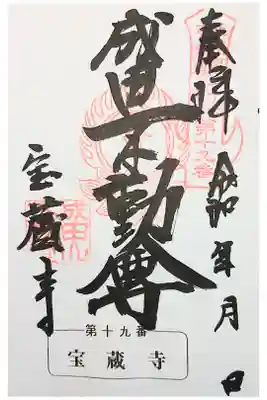 奉拝
第十九番
令和 年 月 日
成田不動尊
宝蔵寺
第十九番
宝蔵寺